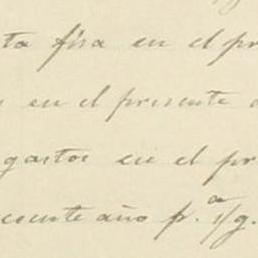 ta fisa en el pr
s en el presente
gastos en el pr
esente año p.ª s/g.